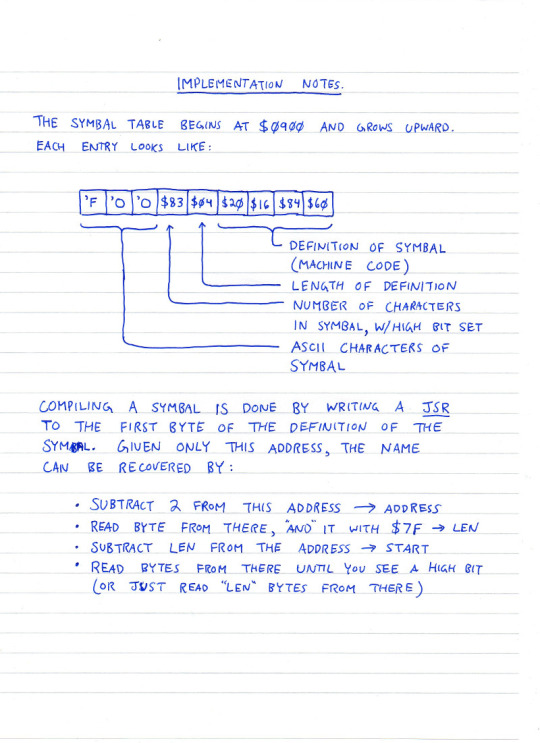 IMPLEMENTATION NOTES.
THE SYMBAL TABLE BEGINS AT $0900 AND GROWS UPWARD.
EACH ENTRY LOOKS LIKE:
'F 'O 'O $83 $04 $20 $16 $84 $60
DEFINITION OF SYMBAL
(MACHINE CODE)
LENGTH OF DEFINITION
NUMBER OF CHARACTERS
IN SYMBAL, W/HIGH BIT SET
ASCII CHARACTERS OF
SYMBAL
COMPILING A SYMBAL IS DONE BY WRITING A JSR
TO THE FIRST BYTE OF THE DEFINITION OF THE
SYMBAL. GIVEN ONLY THIS ADDRESS, THE NAME
CAN BE RECOVERED BY:
• SUBTRACT 2 FROM THIS ADDRESS → ADDRESS
• READ BYTE FROM THERE, "AND" IT WITH $7F → LEN
• SUBTRACT LEN FROM THE ADDRESS → START
• READ BYTES FROM THERE UNTIL YOU SEE A HIGH BIT
(OR JUST READ "LEN" BYTES FROM THERE)